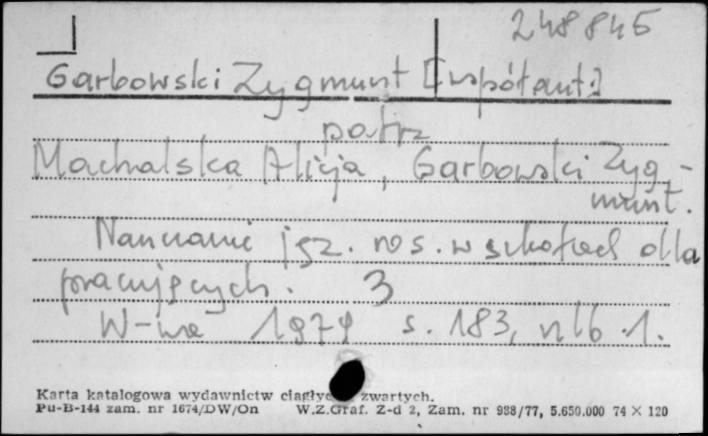 248845
Garbowski Zygmunt [współaut.]
patrz
Machalska Alicja, Garbowski Zyg-
munt.
Nauczanie jęz. ros. w szkołach dla
pracujących. 3
W-wa 1979 s. 183, nlb. 1.
Karta katalogowa wydawnictw ciągłyc zwartych.
Pu-B-144 zam. nr 1674/DW/On W.Z.Graf. Z-d 2, Zam. nr 938/77, 5.650.000 74 × 120